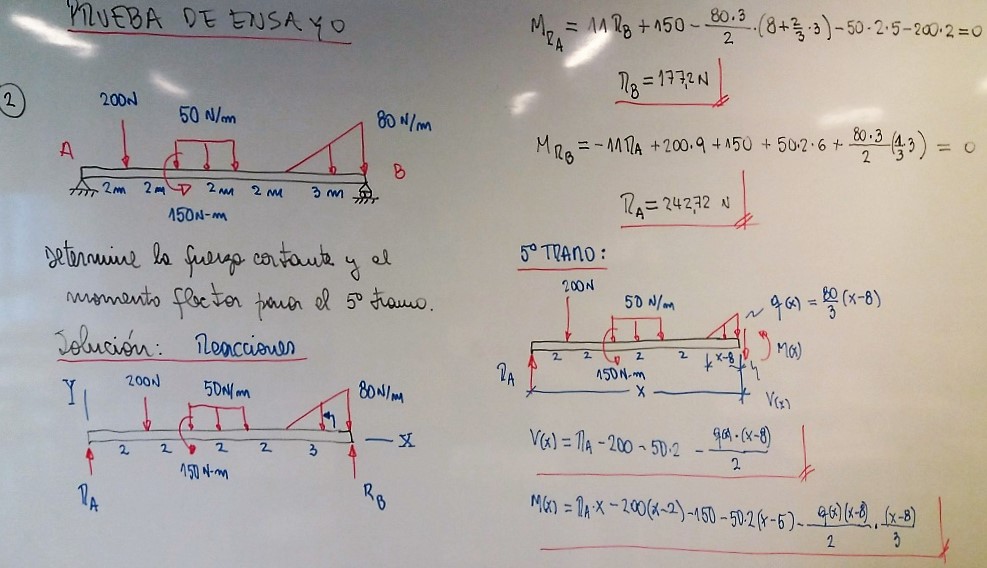 PRUEBA DE ENSAYO
2
200N
50 N/m
80 N/m
A
B
2m 2m 2m 2m 3m
150N-m
Determine la fuerza cortante y el
momento flector para el 5º tramo.
Solución: Reacciones
Y
200N
50N/m
80N/m
2 2 2 2 3
X
150N-m
R_A
R_B
M_{R_A} = 11R_B + 150 - \frac{80·3}{2}·(8+\frac{2}{3}·3) - 50·2·5 - 200·2 = 0
R_B = 177,2 N
M_{R_B} = -11R_A + 200·9 + 150 + 50·2·6 + \frac{80·3}{2}(\frac{1}{3}·3) = 0
R_A = 242,72 N
5º TRAMO:
200N
50 N/m
q(x) = \frac{80}{3}(x-8)
2 2 2 2 x-8
M(x)
R_A
150N-m
x
V(x)
V(x) = R_A - 200 - 50·2 - \frac{q(x)·(x-8)}{2}
M(x) = R_A·x - 200(x-2) - 150 - 50·2(x-5) - \frac{q(x)(x-8)}{2}·\frac{(x-8)}{3}